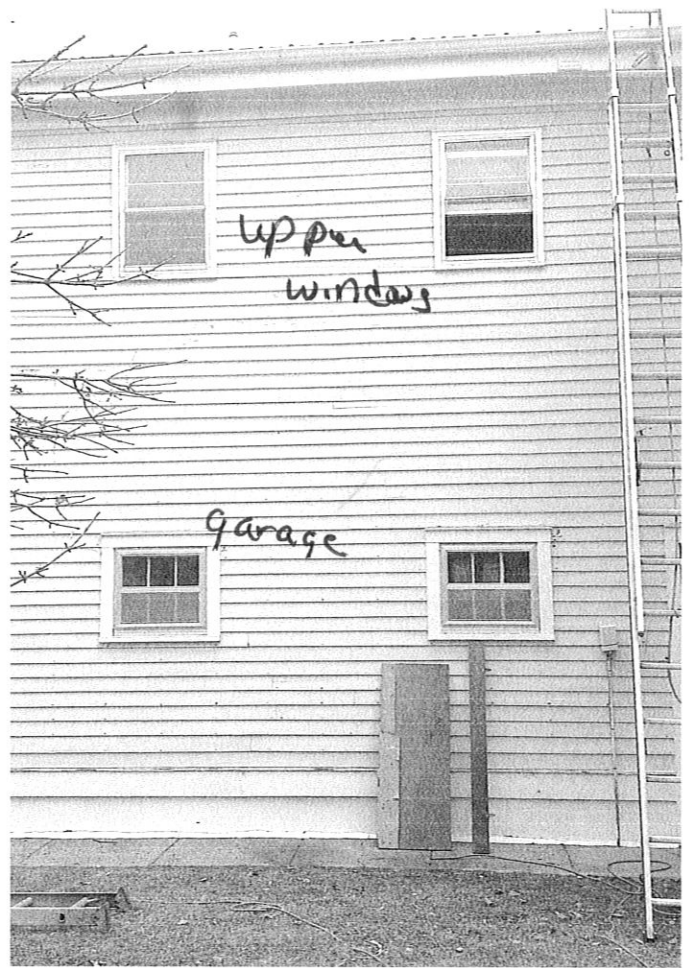 upper
windows
garage